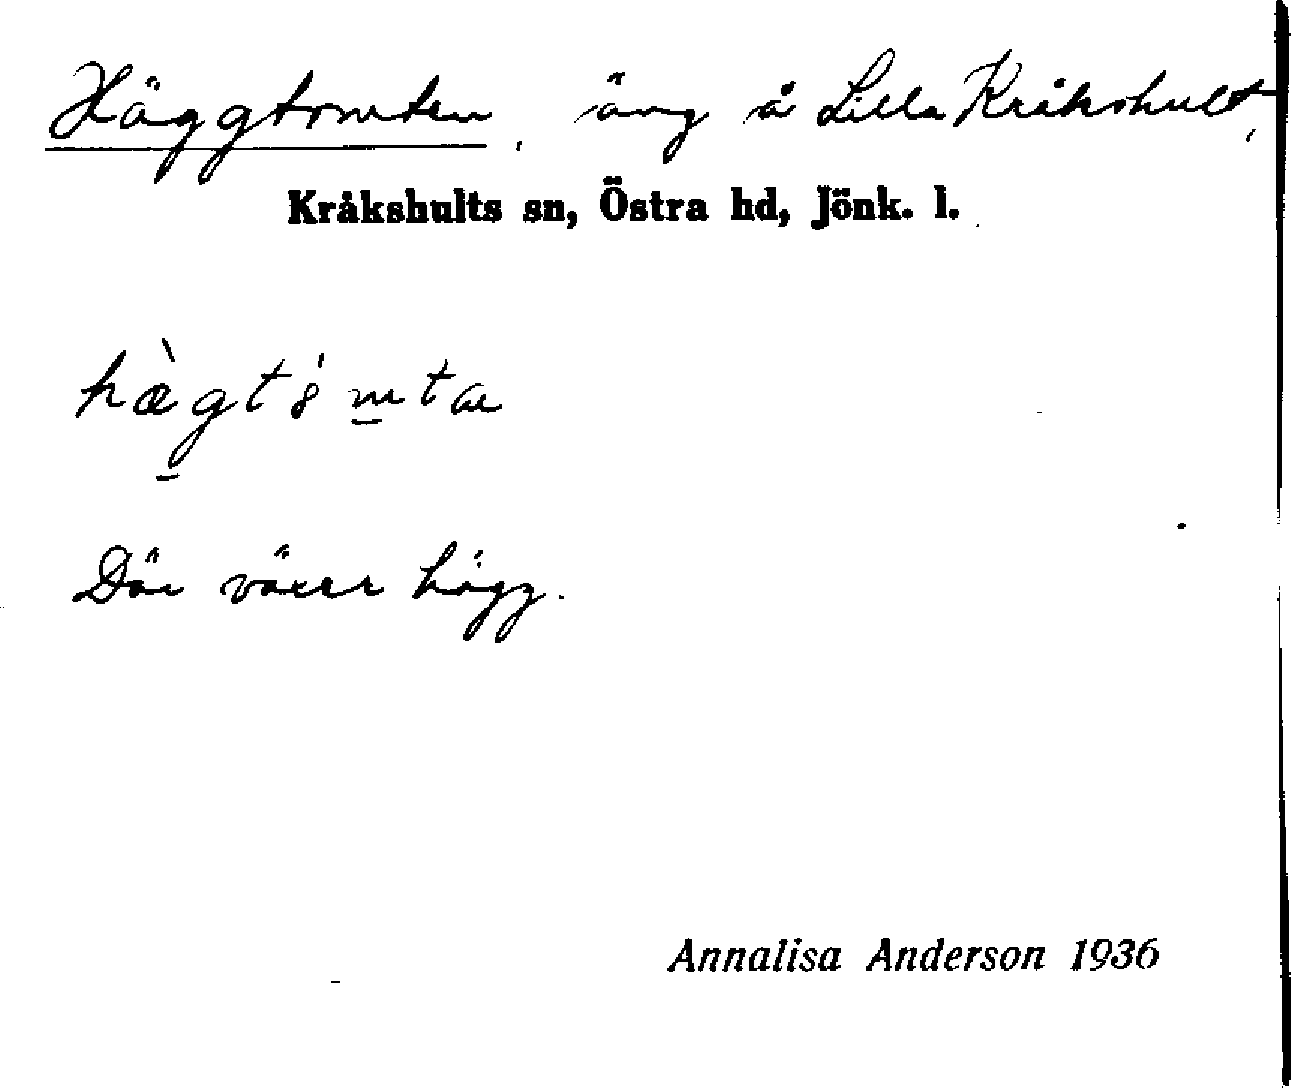 Häggtomten, äng å Lilla Kråkshult,
Kråkshults sn, Östra hd, Jönk. l.
Där växer hägg.
Annalisa Anderson 1936